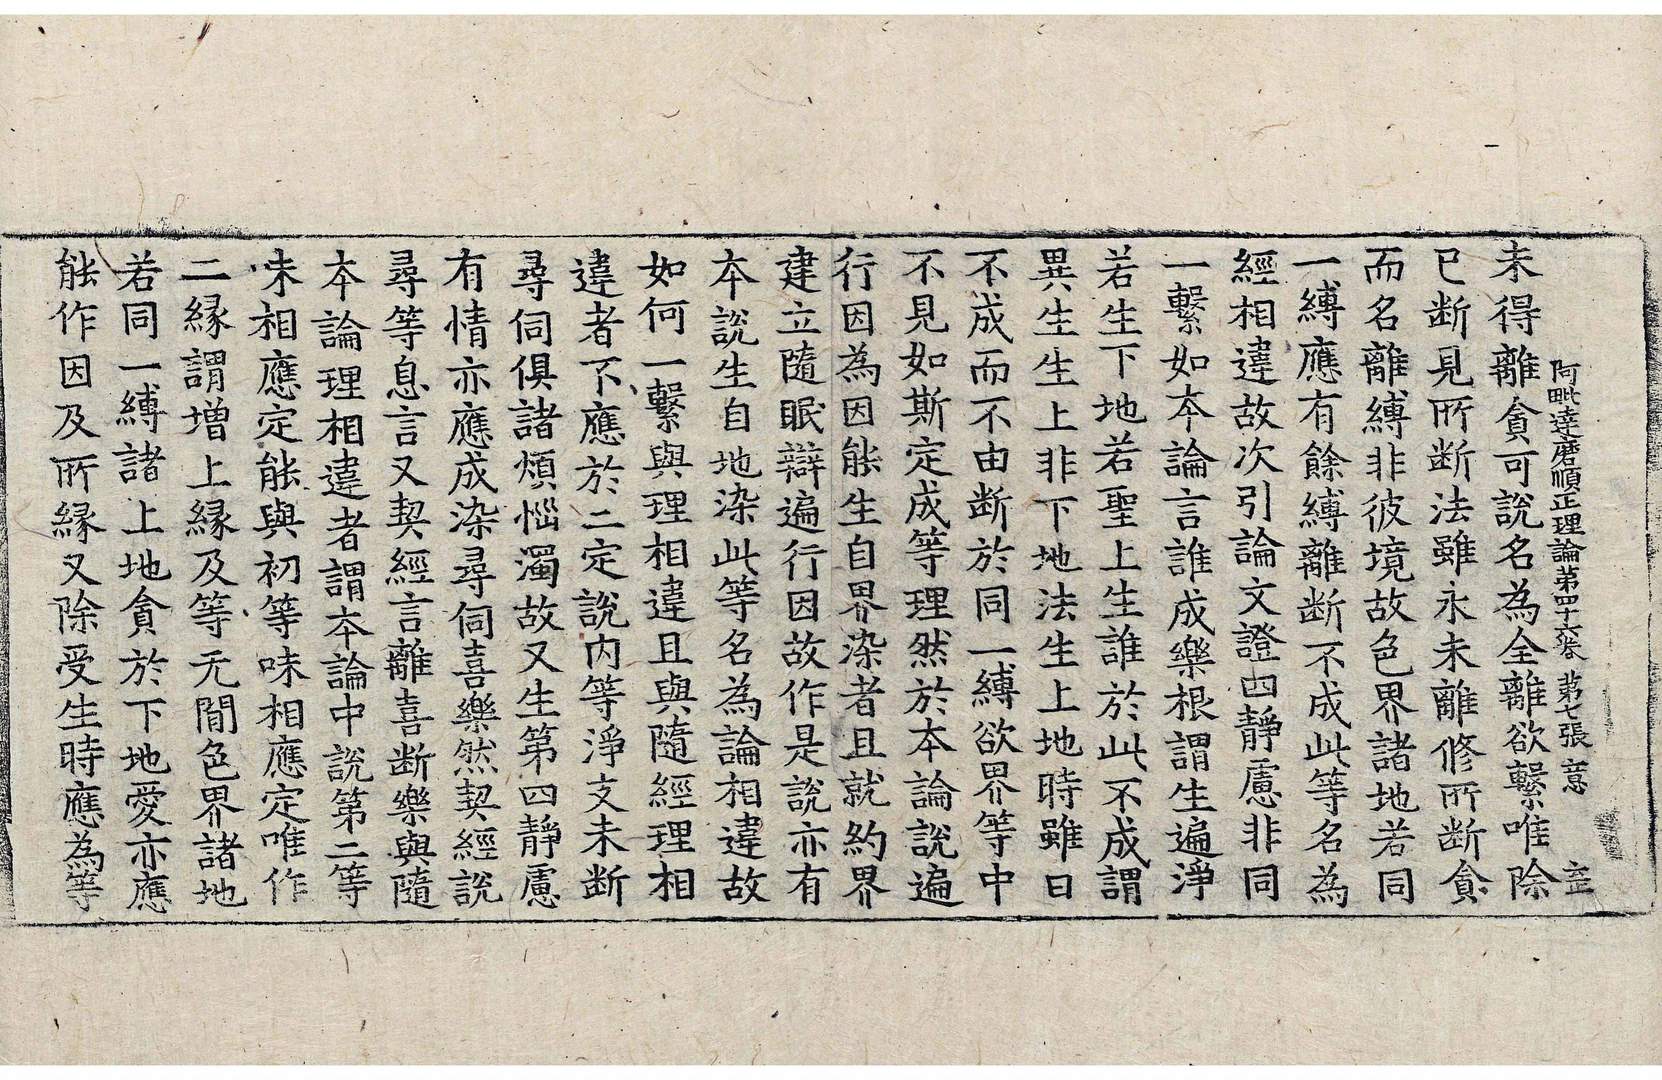 阿毗達磨順正理論第四十六卷 第七張 意
未得離貪可說名為全離欲繫唯除
已断見所断法雖永未離修所断貪
而名離縛非彼境故色界諸地若同
一縛應有餘縛離断不成此等名為
經相違故次引論文證四靜慮非同
一繫如本論言誰成樂根謂生遍淨
若生下地若聖上生誰於此不成謂
異生生上非下地法生上地時雖日
不成而不由断於同一縛欲界等中
不見如斯定成等理然於本論說遍
行因為因能生自界染者且就約界
建立隨眠辯遍行因故作是說亦有
本說生自地染此等名為論相違故
如何一繫與理相違且與隨經理相
違者不應於二定說内等淨支未断
尋伺俱諸煩惱濁故又生第四靜慮
有情亦應成染尋伺喜樂然契經說
尋等息言又契經言離喜断樂與隨
本論理相違者謂本論中說第二等
味相應定能與初等味相應定唯作
二縁謂增上縁及等无間色界諸地
若同一縛諸上地貪於下地愛亦應
能作因及所縁又除受生時應為等